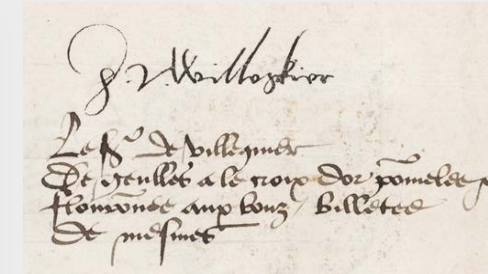 Le Sr de villequier
De geulles a le croix dor põmelee
flourõnee aux bouz Billetee
de mesmes